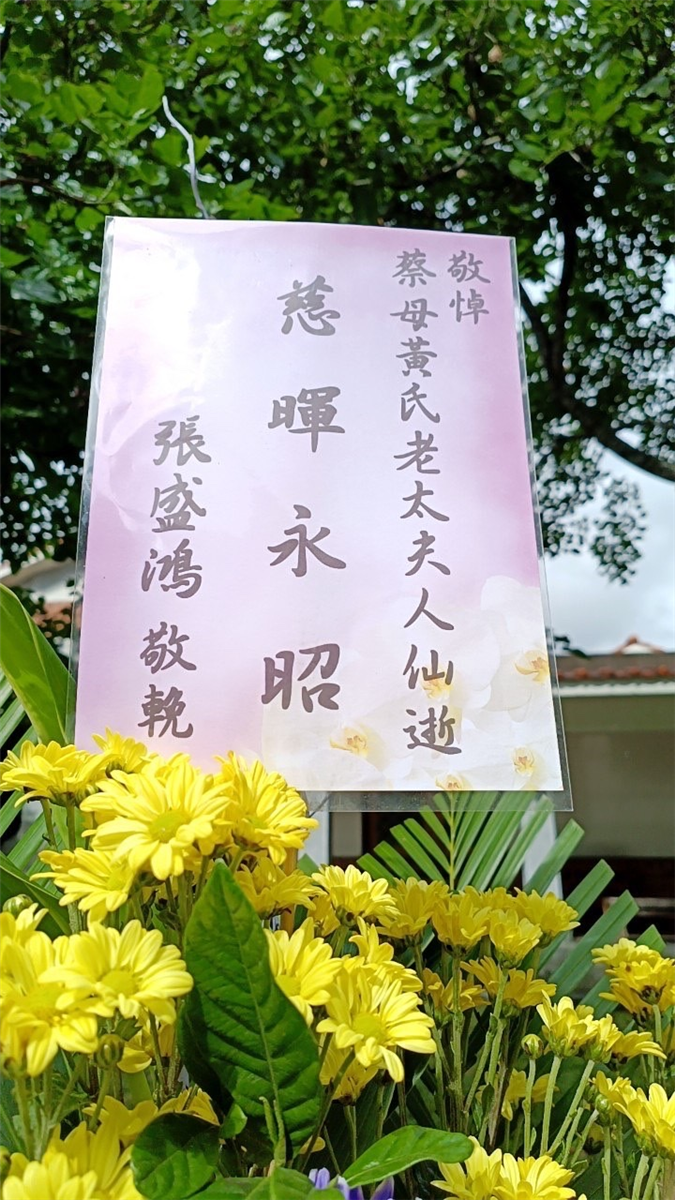 敬悼
蔡母黃氏老太夫人仙逝
慈暉永昭
張盛鴻 敬輓